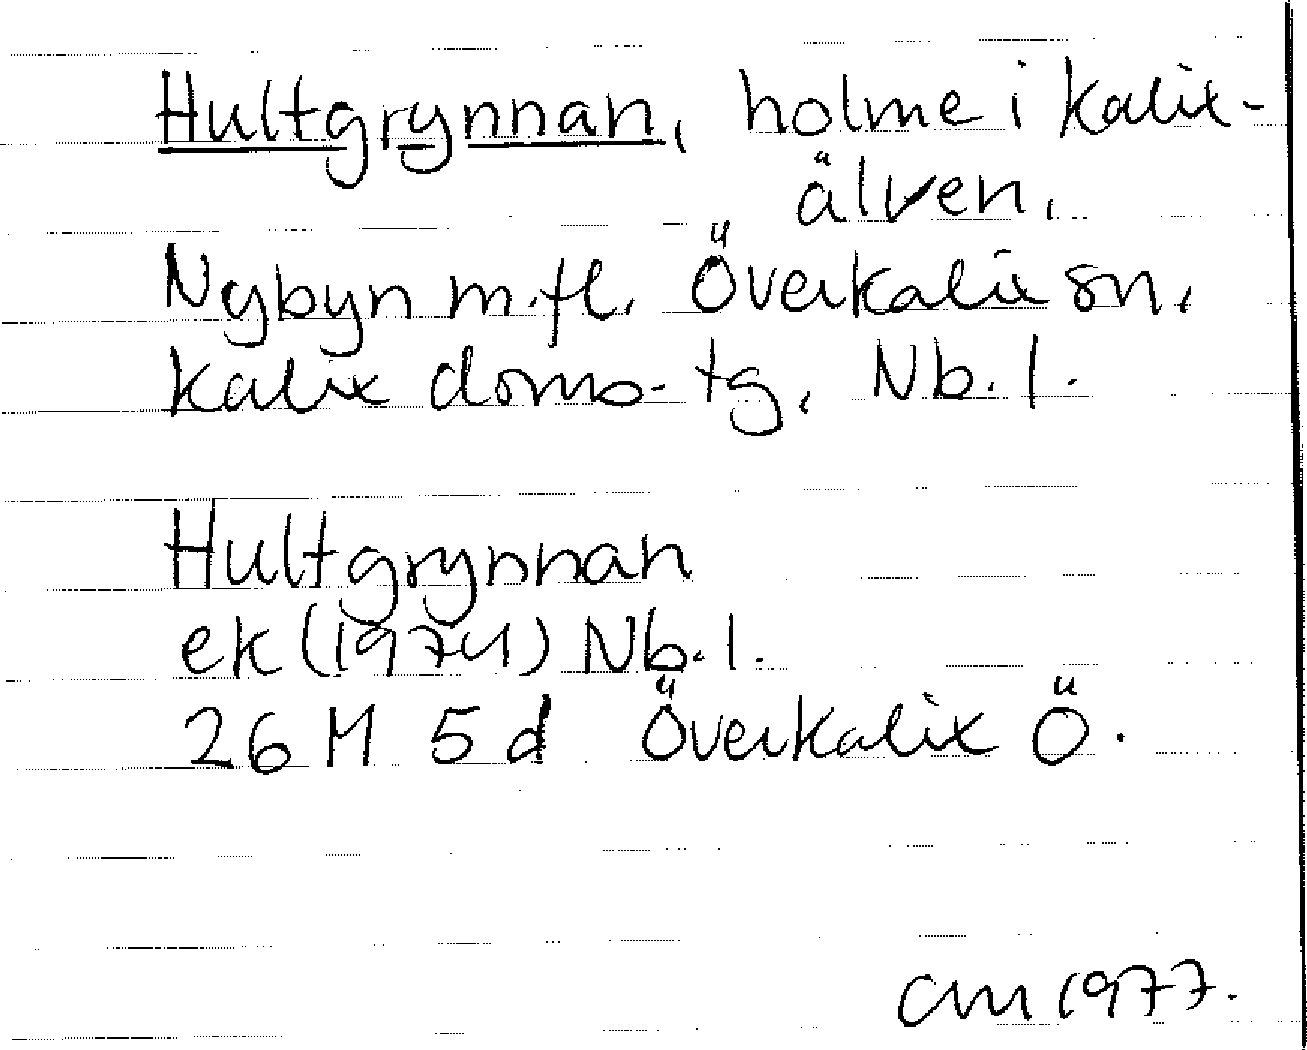 Hultgrynnan, holme i Kalix-
älven,
Nybyn m.fl. Överkalix sn,
Kalix doms-tg, Nb.l.
Hultgrynnan
ek (1974) Nb.l.
26 M 5 d Överkalix Ö.
CM 1977.